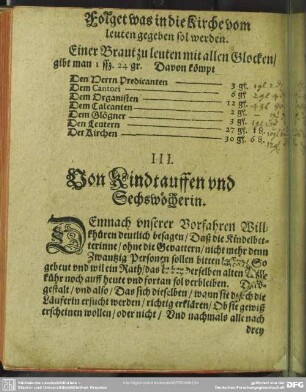 Folget was in die Kirche vom
leuten gegeben sol werden.
Einer Braut zu leuten mit allen Glocken/
gibt man 1 ffl. 24 gr. Davon kömpt
Den Herrn Predicanten 3 gl.
Dem Cantori 6 gl.
Dem Organisten 12 gl.
Dem Calcanten
Dem Glögner 2 gl.
Den Leutern 3 gl.
Der Kirchen 27 gl. 18.
30 gl. 6 8.
III.
Von Kindtauffen vnd
Sechswöcherin.
DEmnach vnserer Vorfahren Will-
khüren deutlich besagen/ Daß die Kindelbet-
terinne/ ohne die Gevattern/ nicht mehr denn
Zwantzig Personen sollen bitten So
gebeut vnd wil ein Rath/ das derselben alten
kühr noch auff heute vnd fortan sol verbleiben.
gestalt/ vnd also/ Das sich dieselben/ wann sie durch die
Läuferin ersucht werden/ richtig erklären/ Ob sie gewiß
erscheinen wollen/ oder nicht/ Vnd nachmals alle nach
drey